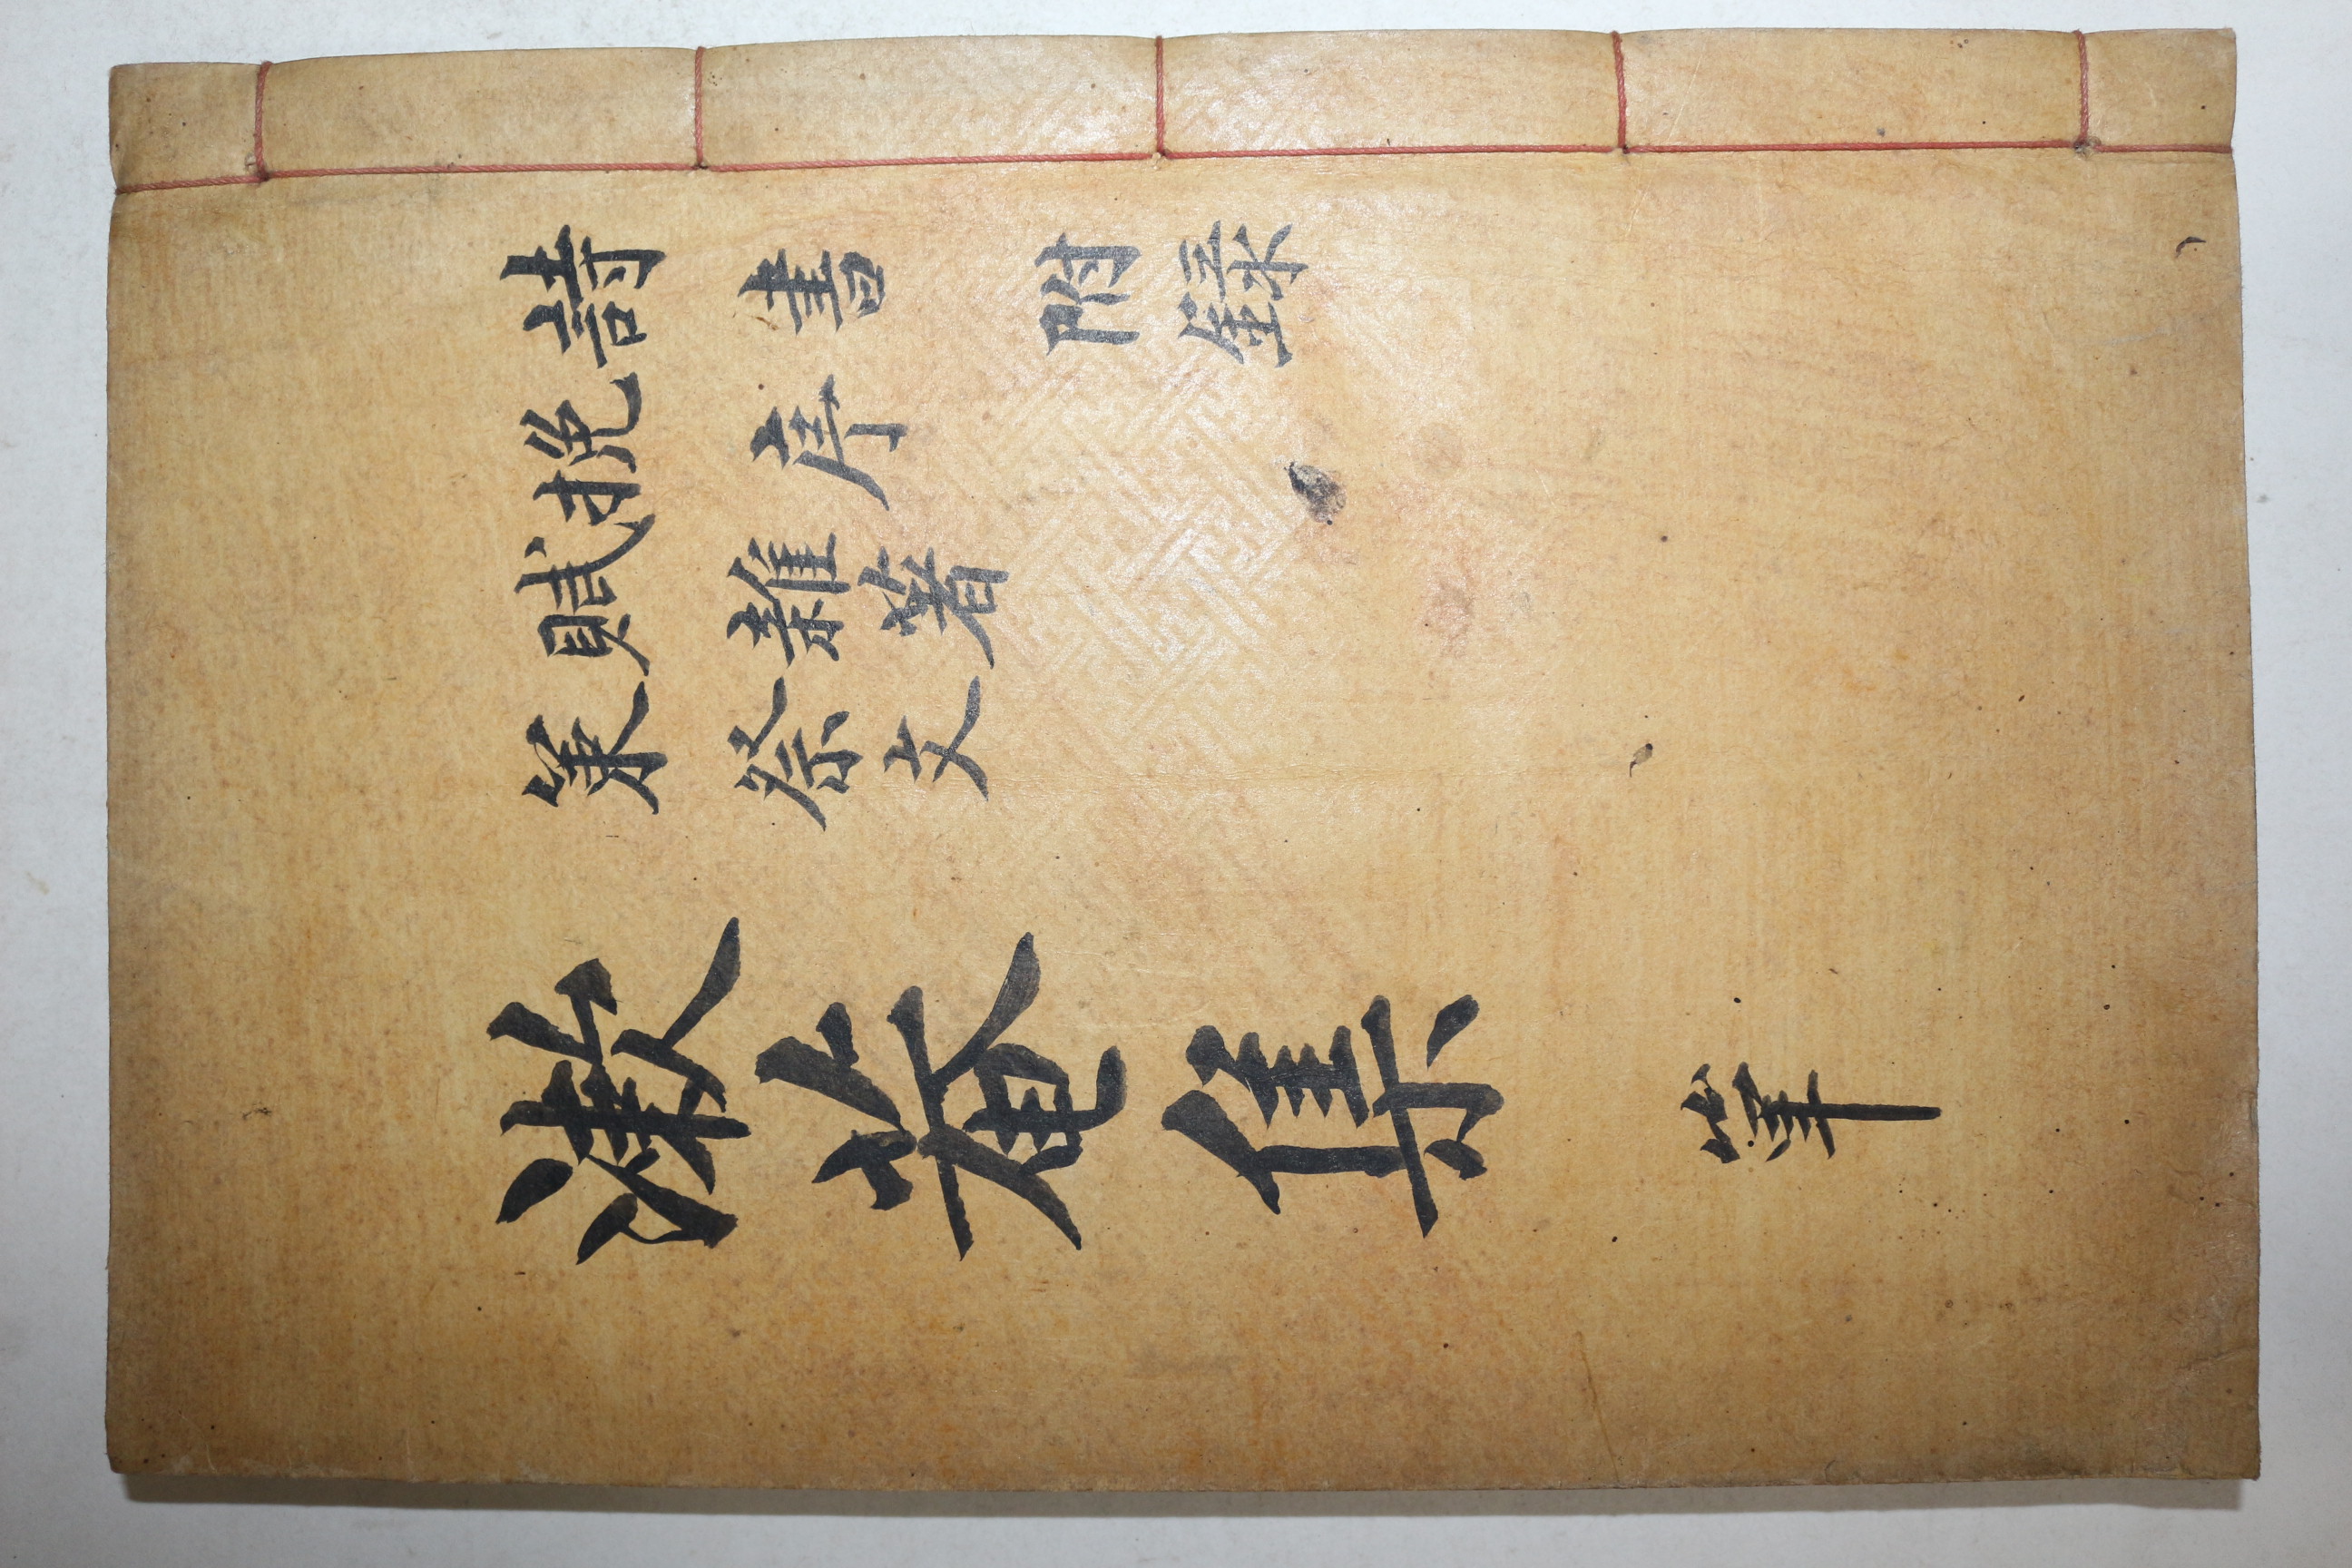 詩 書 附錄
挽 序
賦 雜著
策 祭文
漱菴集 單